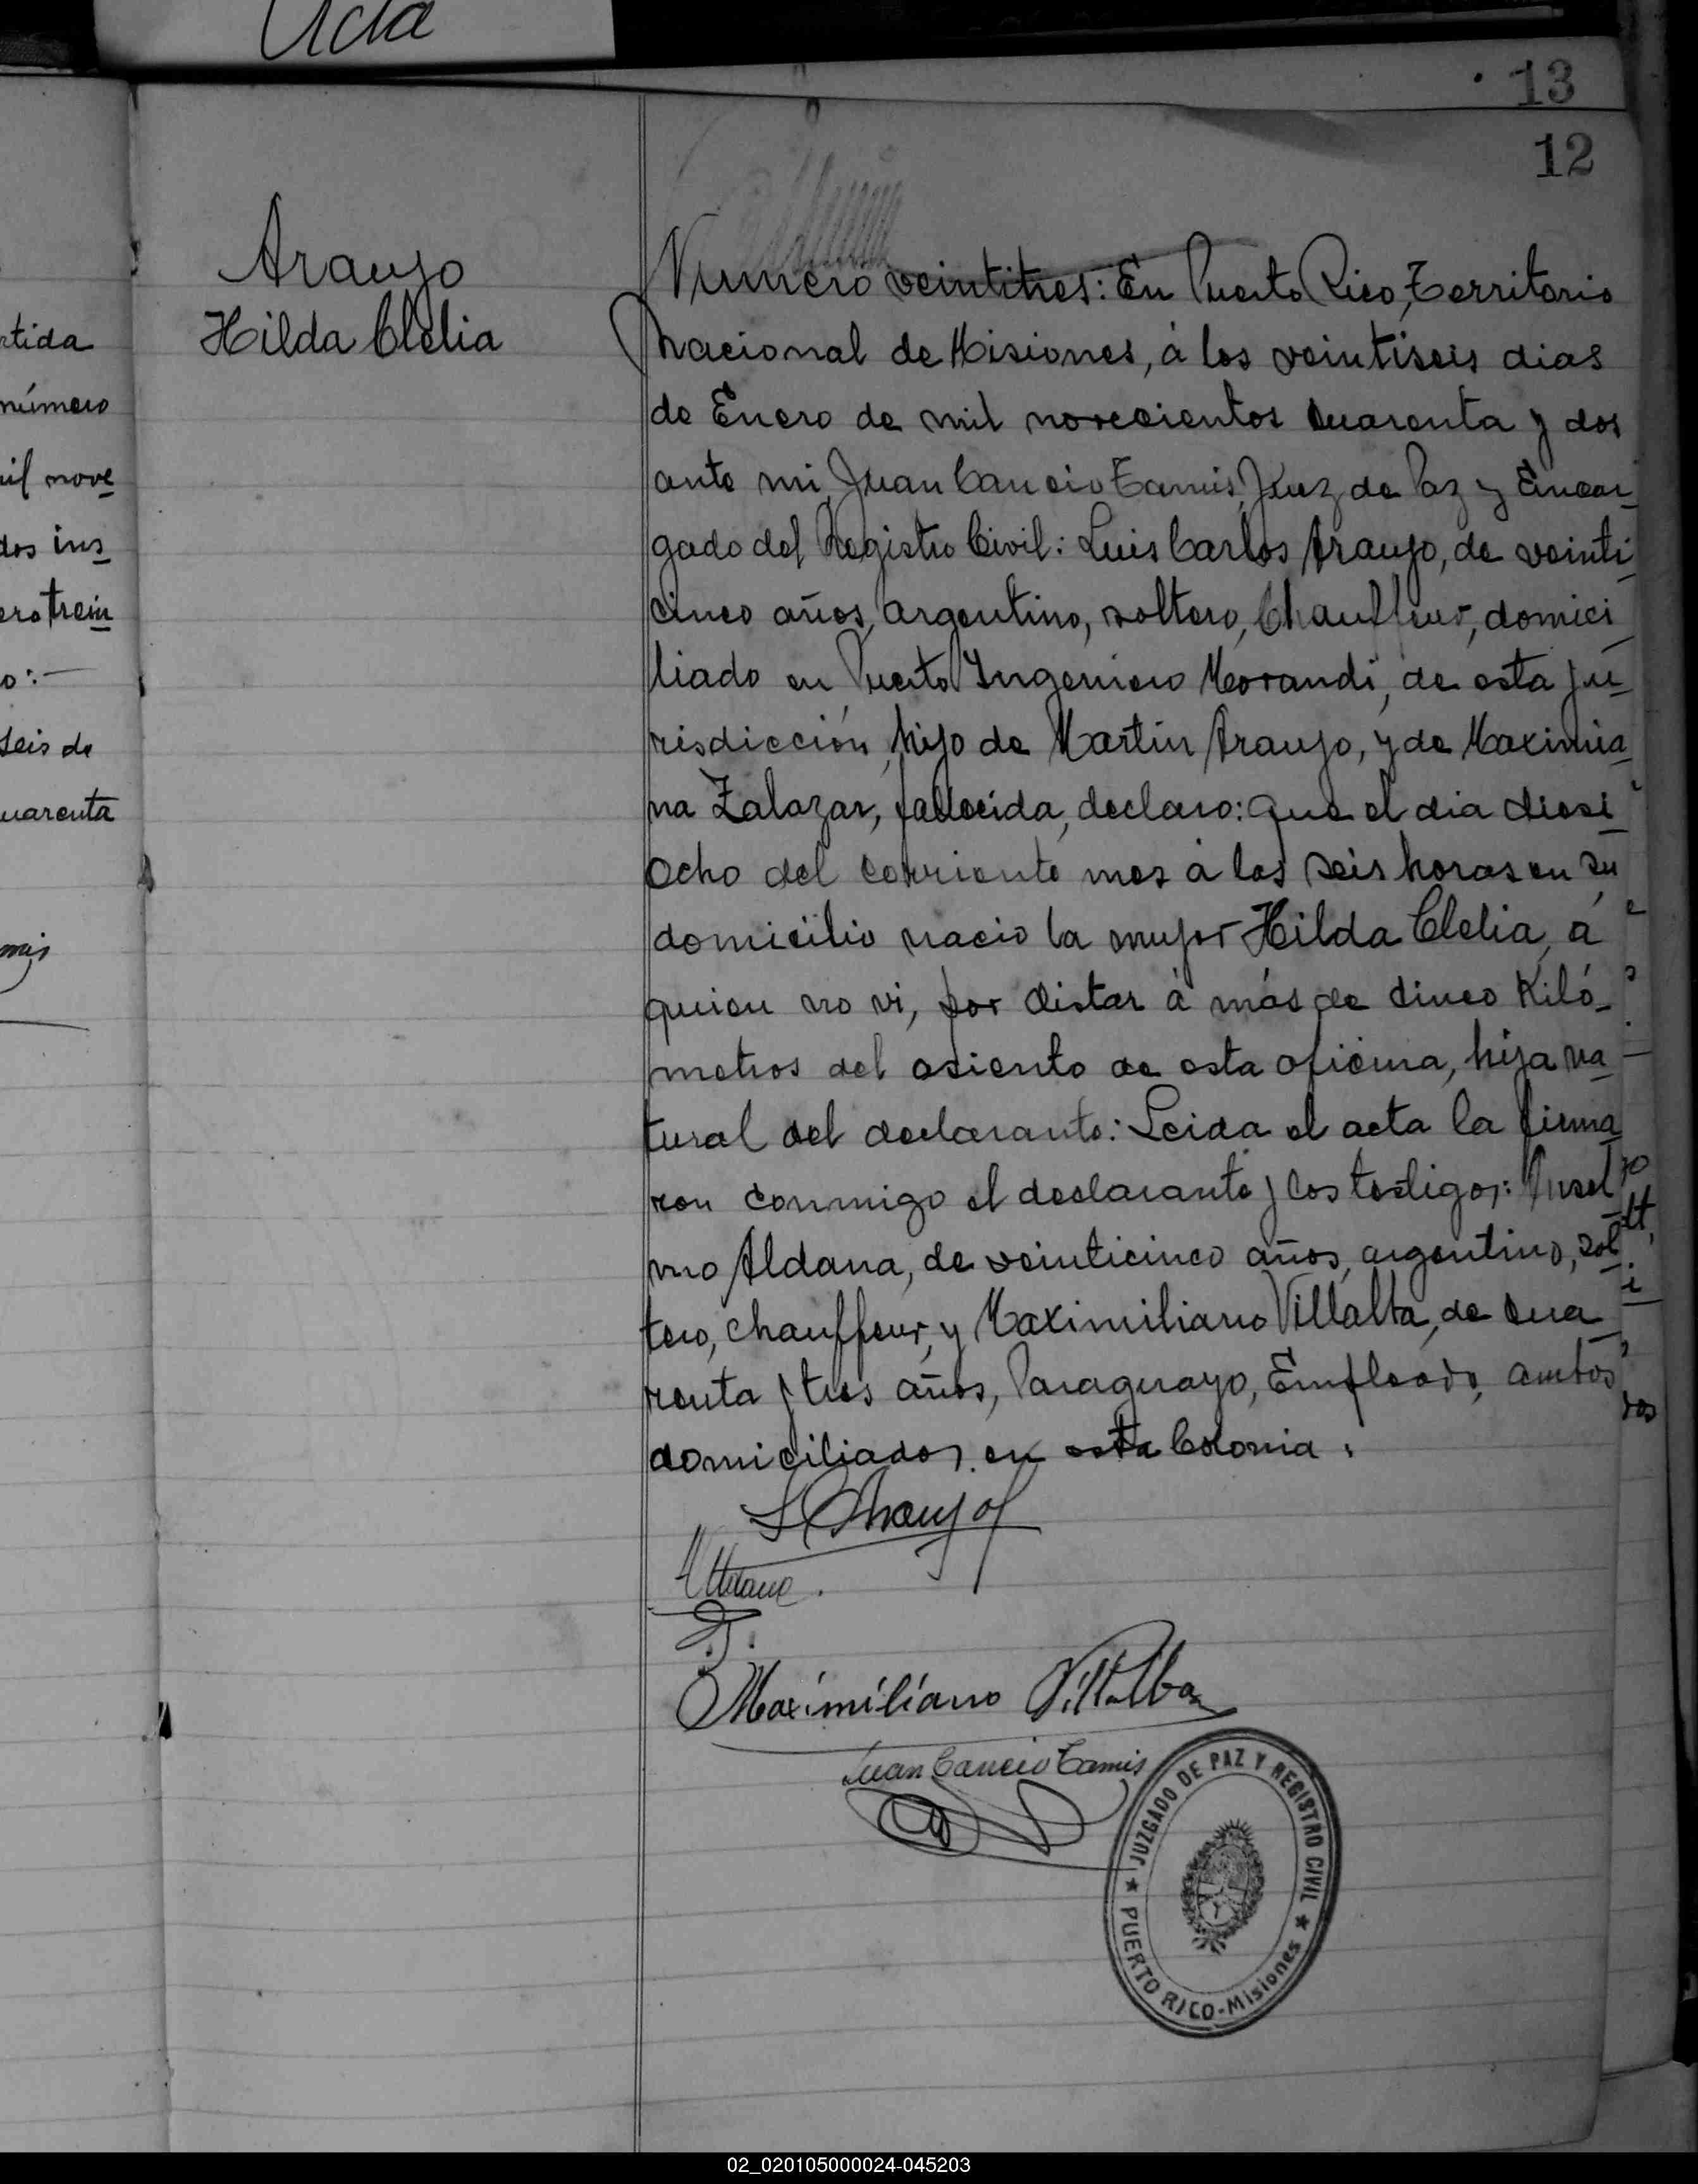 Acta
13
12
rtida
número
mil nove
dos ins
ero trein
o:-
seis de
uarenta
mis
Araujo
Hilda Clelia
Numero veintitres: En Puerto Rico, Territorio
Nacional de Misiones, á los veintiseis dias
de Enero de mil novecientos cuarenta y dos
ante mi, Juan Cancio Tamis, Juez de Paz y Encar
gado del Registro Civil: Luis Carlos Araujo, de veinti
cinco años, argentino, soltero, Chauffeur, domici
liado en Puerto Ingeniero Morandi, de esta ju
risdicción, hijo de Martin Araujo, y de Maximia
na Zalazar, fallecida, declaro: que el dia diesi
ocho del corriente mes á las seis horas en su
domicilio nacio la mujer Hilda Clelia, á
quien no vi, por distar á más de cinco Kiló
metros del asiento de esta oficina, hija na
tural del declarante: Leida el acta la firma
ron conmigo el declarante y los testigos: Ansel
mo Aldana, de veinticinco años, argentino, sol
tero, chauffeur, y Maximiliano Villalta, de cua
renta y tres años, Paraguayo, Empleado, ambos
domiciliados en esta Colonia.
L C Araujo
Maximiliano Villalba
Juan Cancio Tamis
JUZGADO DE PAZ Y REGISTRO CIVIL
PUERTO RICO-Misiones
02_020105000024-045203